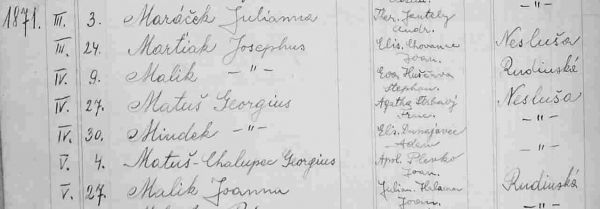 -"-
1871. III. 3. Maráček Julianna Ther. Jantely
Andr.
III. 24. Martiak Josephus Elis. Chovanec Nesluša
Joan.
IV. 9. Malik -"- Eva Rudinská
Stephan.
IV. 27. Matuš Georgius Agatha Nesluša
Franc.
IV. 30. Mindek -"- Elis. Dunajovec -"-
Adam
V. 4. Matuš-Chalupec Georgius Apol. Plevko -"-
Joan.
V. 27. Malik Joanna Julian. Rudinská
Joan.
-"-